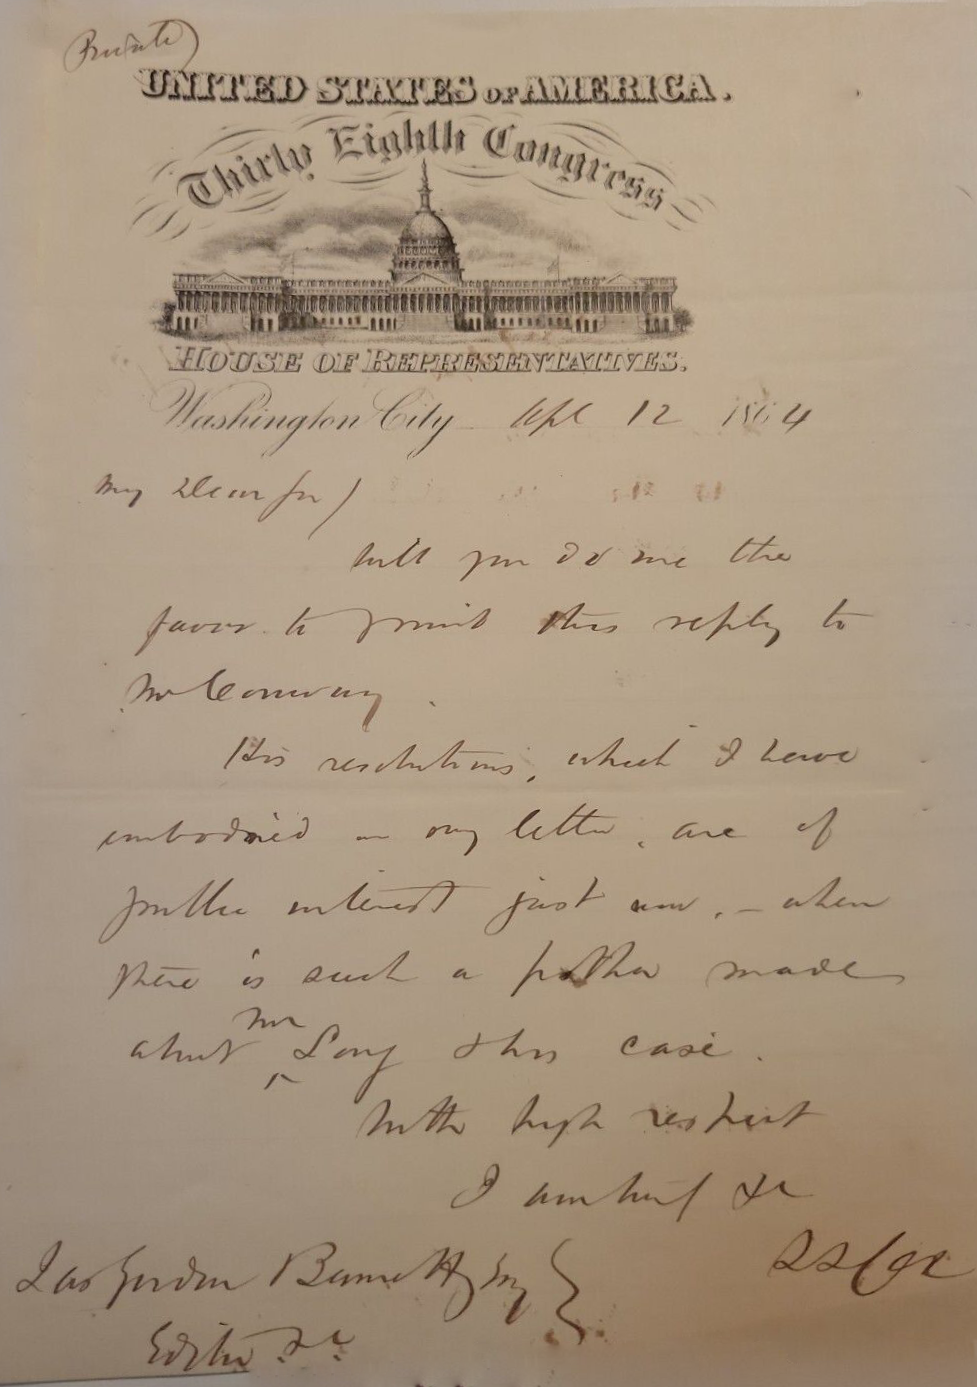 Private)
UNITED STATES OF AMERICA.
Thirty Eighth Congress
HOUSE OF REPRESENTATIVES.
Washington City Apl 12 1864
My Dear Sir)
Will you do me the
favor to print this reply to
Mr Conway.
His resolutions, which I have
embodied in my letter, are of
public interest just now, – when
there is such a pother made
about Mr Long & his case.
With high respect
I am &c
S S Cox
Jas Gordon Bennett Esq
Editor &c